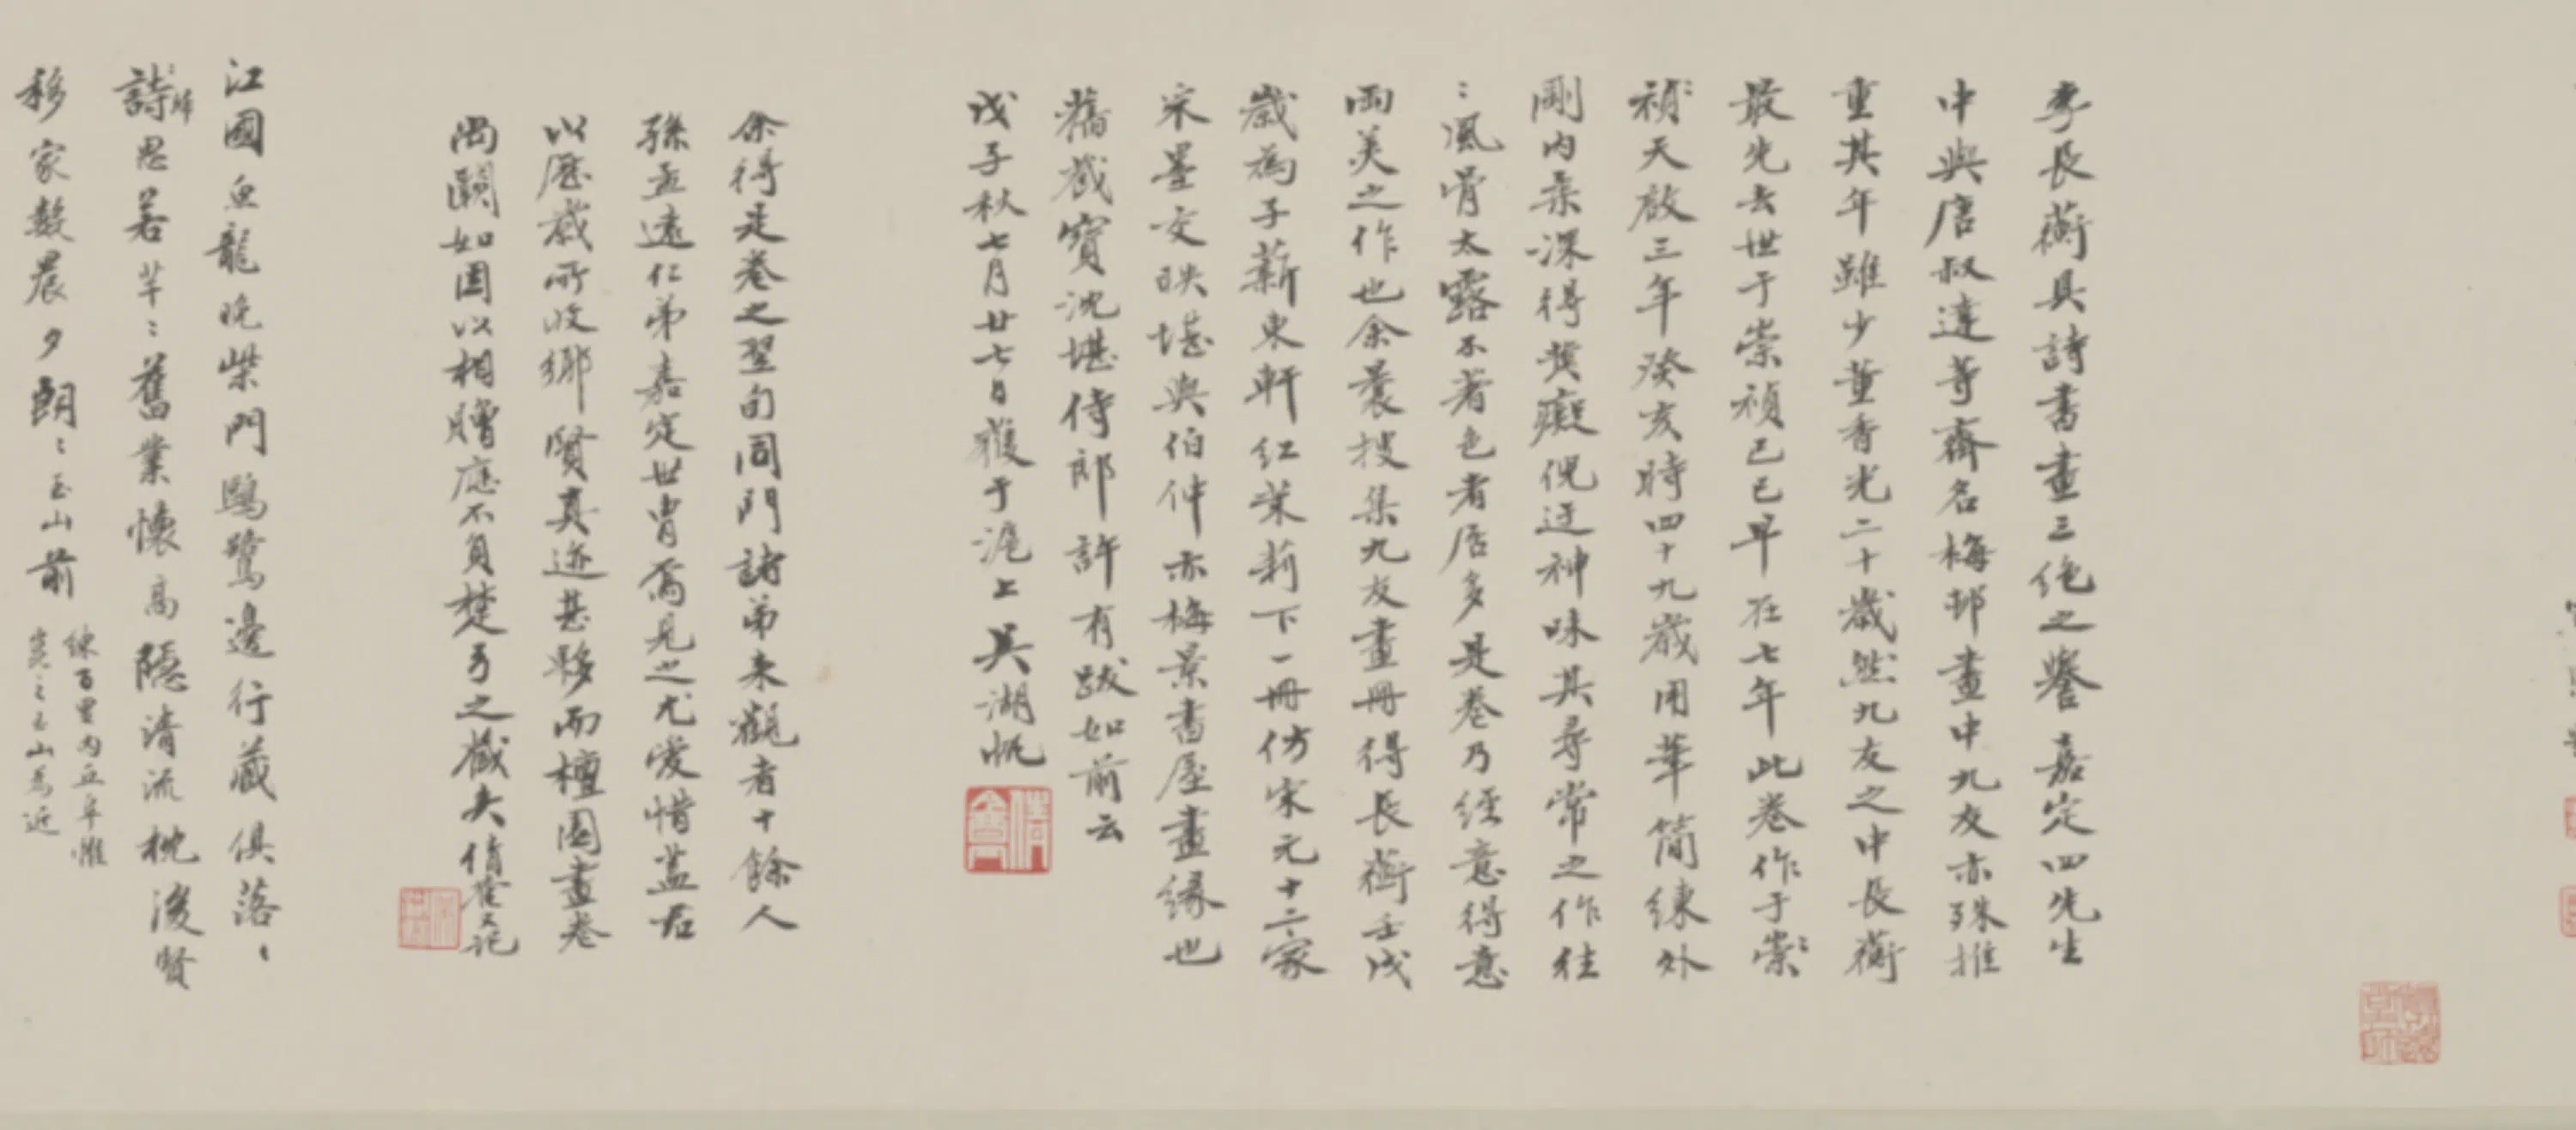 李長蘅具詩書畫三絕之譽嘉定四先生
中與唐叔達等齊名梅邨畫中九友亦殊推
重其年雖少董香光二十歲然九友之中長蘅
最先去世于崇禎己巳早在七年此卷作于崇
禎天啟三年癸亥時四十九歲用筆簡練外
剛內柔深得黃癡倪迂神味其尋常之作往
〻風骨太露不着色者居多是卷乃經意得意
兩美之作也余曩搜集九友畫冊得長蘅壬戌
歲為子薪東軒紅茉莉下一冊仿宋元十二家
宋墨交映堪與伯仲亦梅景書屋畫緣也
舊藏寶沈堪侍郎許有跋如前云
戊子秋七月廿七日獲于滬上吳湖帆
余得是卷之翌旬同門諸弟來觀者十餘人
孫孟遠仁弟嘉定世胄焉見之尤愛惜蓋君
以歷歲所收鄉賢真迹甚夥而檀園畫卷
尚闕如因以相贈應不負楚弓之藏矣倩菴又記
江國魚龍晚柴門鷗鷺邊行藏俱落〻
詩思若芊〻舊業懷高隱清流枕後賢
移家數晨夕朗〻玉山前
練百里內丘阜惟
玉山為近